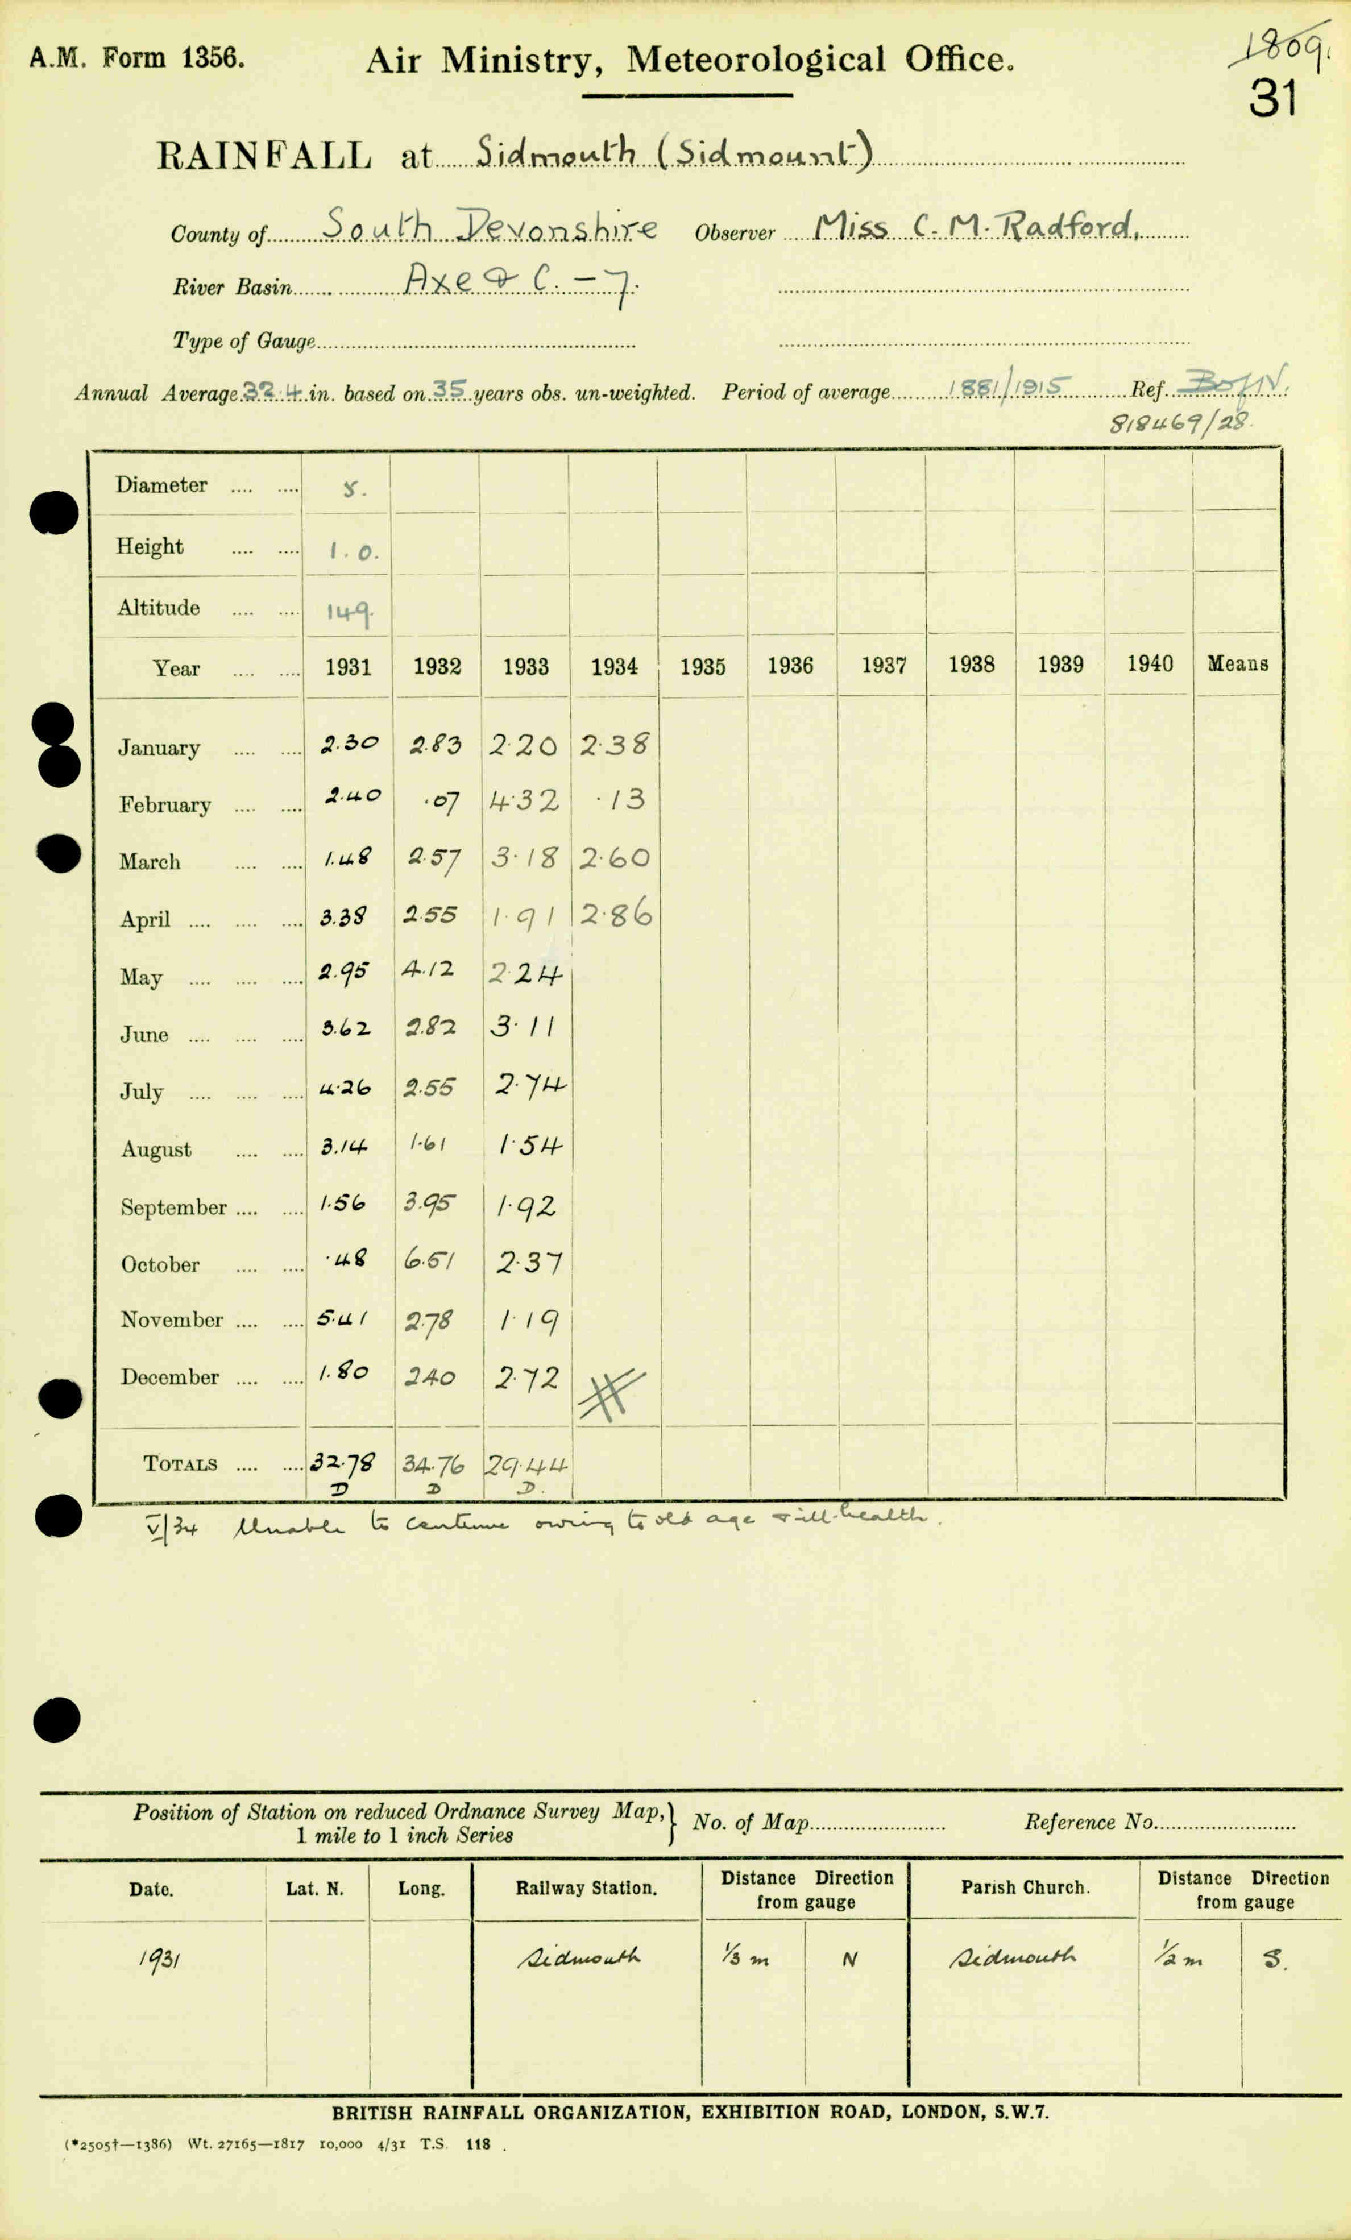 A.M. Form 1356. Air Ministry, Meteorological Office. 1809.
31
RAINFALL at Sidmouth (Sidmount)
County of South Devonshire Observer Miss C. M. Radford.
River Basin Axe & C. - 7.
Type of Gauge
Annual Average 32.4 in. based on 35 years obs. un-weighted. Period of average 1881/1915 Ref.
818469/28.
Diameter .... .... 5.
Height .... .... 1.0.
Altitude .... .... 149.
Year .... .... 1931 1932 1933 1934 1935 1936 1937 1938 1939 1940 Means
January .... .... 2.30 2.83 2.20 2.38
February .... .... 2.40 .07 4.32 .13
March .... .... 1.48 2.57 3.18 2.60
April .... .... .... 3.38 2.55 1.91 2.86
May .... .... .... 2.95 4.12 2.24
June .... .... .... 3.62 2.82 3.11
July .... .... .... 4.26 2.55 2.74
August .... .... 3.14 1.61 1.54
September .... .... 1.56 3.95 1.92
October .... .... .48 6.51 2.37
November .... .... 5.41 2.78 1.19
December .... .... 1.80 2.40 2.72
TOTALS .... .... 32.78 34.76 29.44
D D D.
V/34 Unable to continue owing to old age & ill-health.
Position of Station on reduced Ordnance Survey Map, } No. of Map Reference No.
1 mile to 1 inch Series
Date. Lat. N. Long. Railway Station. Distance Direction from gauge Parish Church. Distance Direction from gauge
1931 Sidmouth 1/3 m N Sidmouth 1/2 m S.
BRITISH RAINFALL ORGANIZATION, EXHIBITION ROAD, LONDON, S.W.7.
(*2505†—1386) Wt. 27165—1817 10,000 4/31 T.S. 118